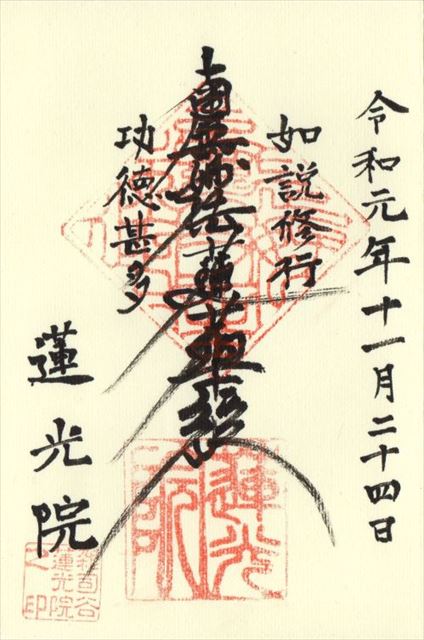 令和元年十一月二十四日
如説修行
南無妙法蓮華経
功徳甚多
蓮光院